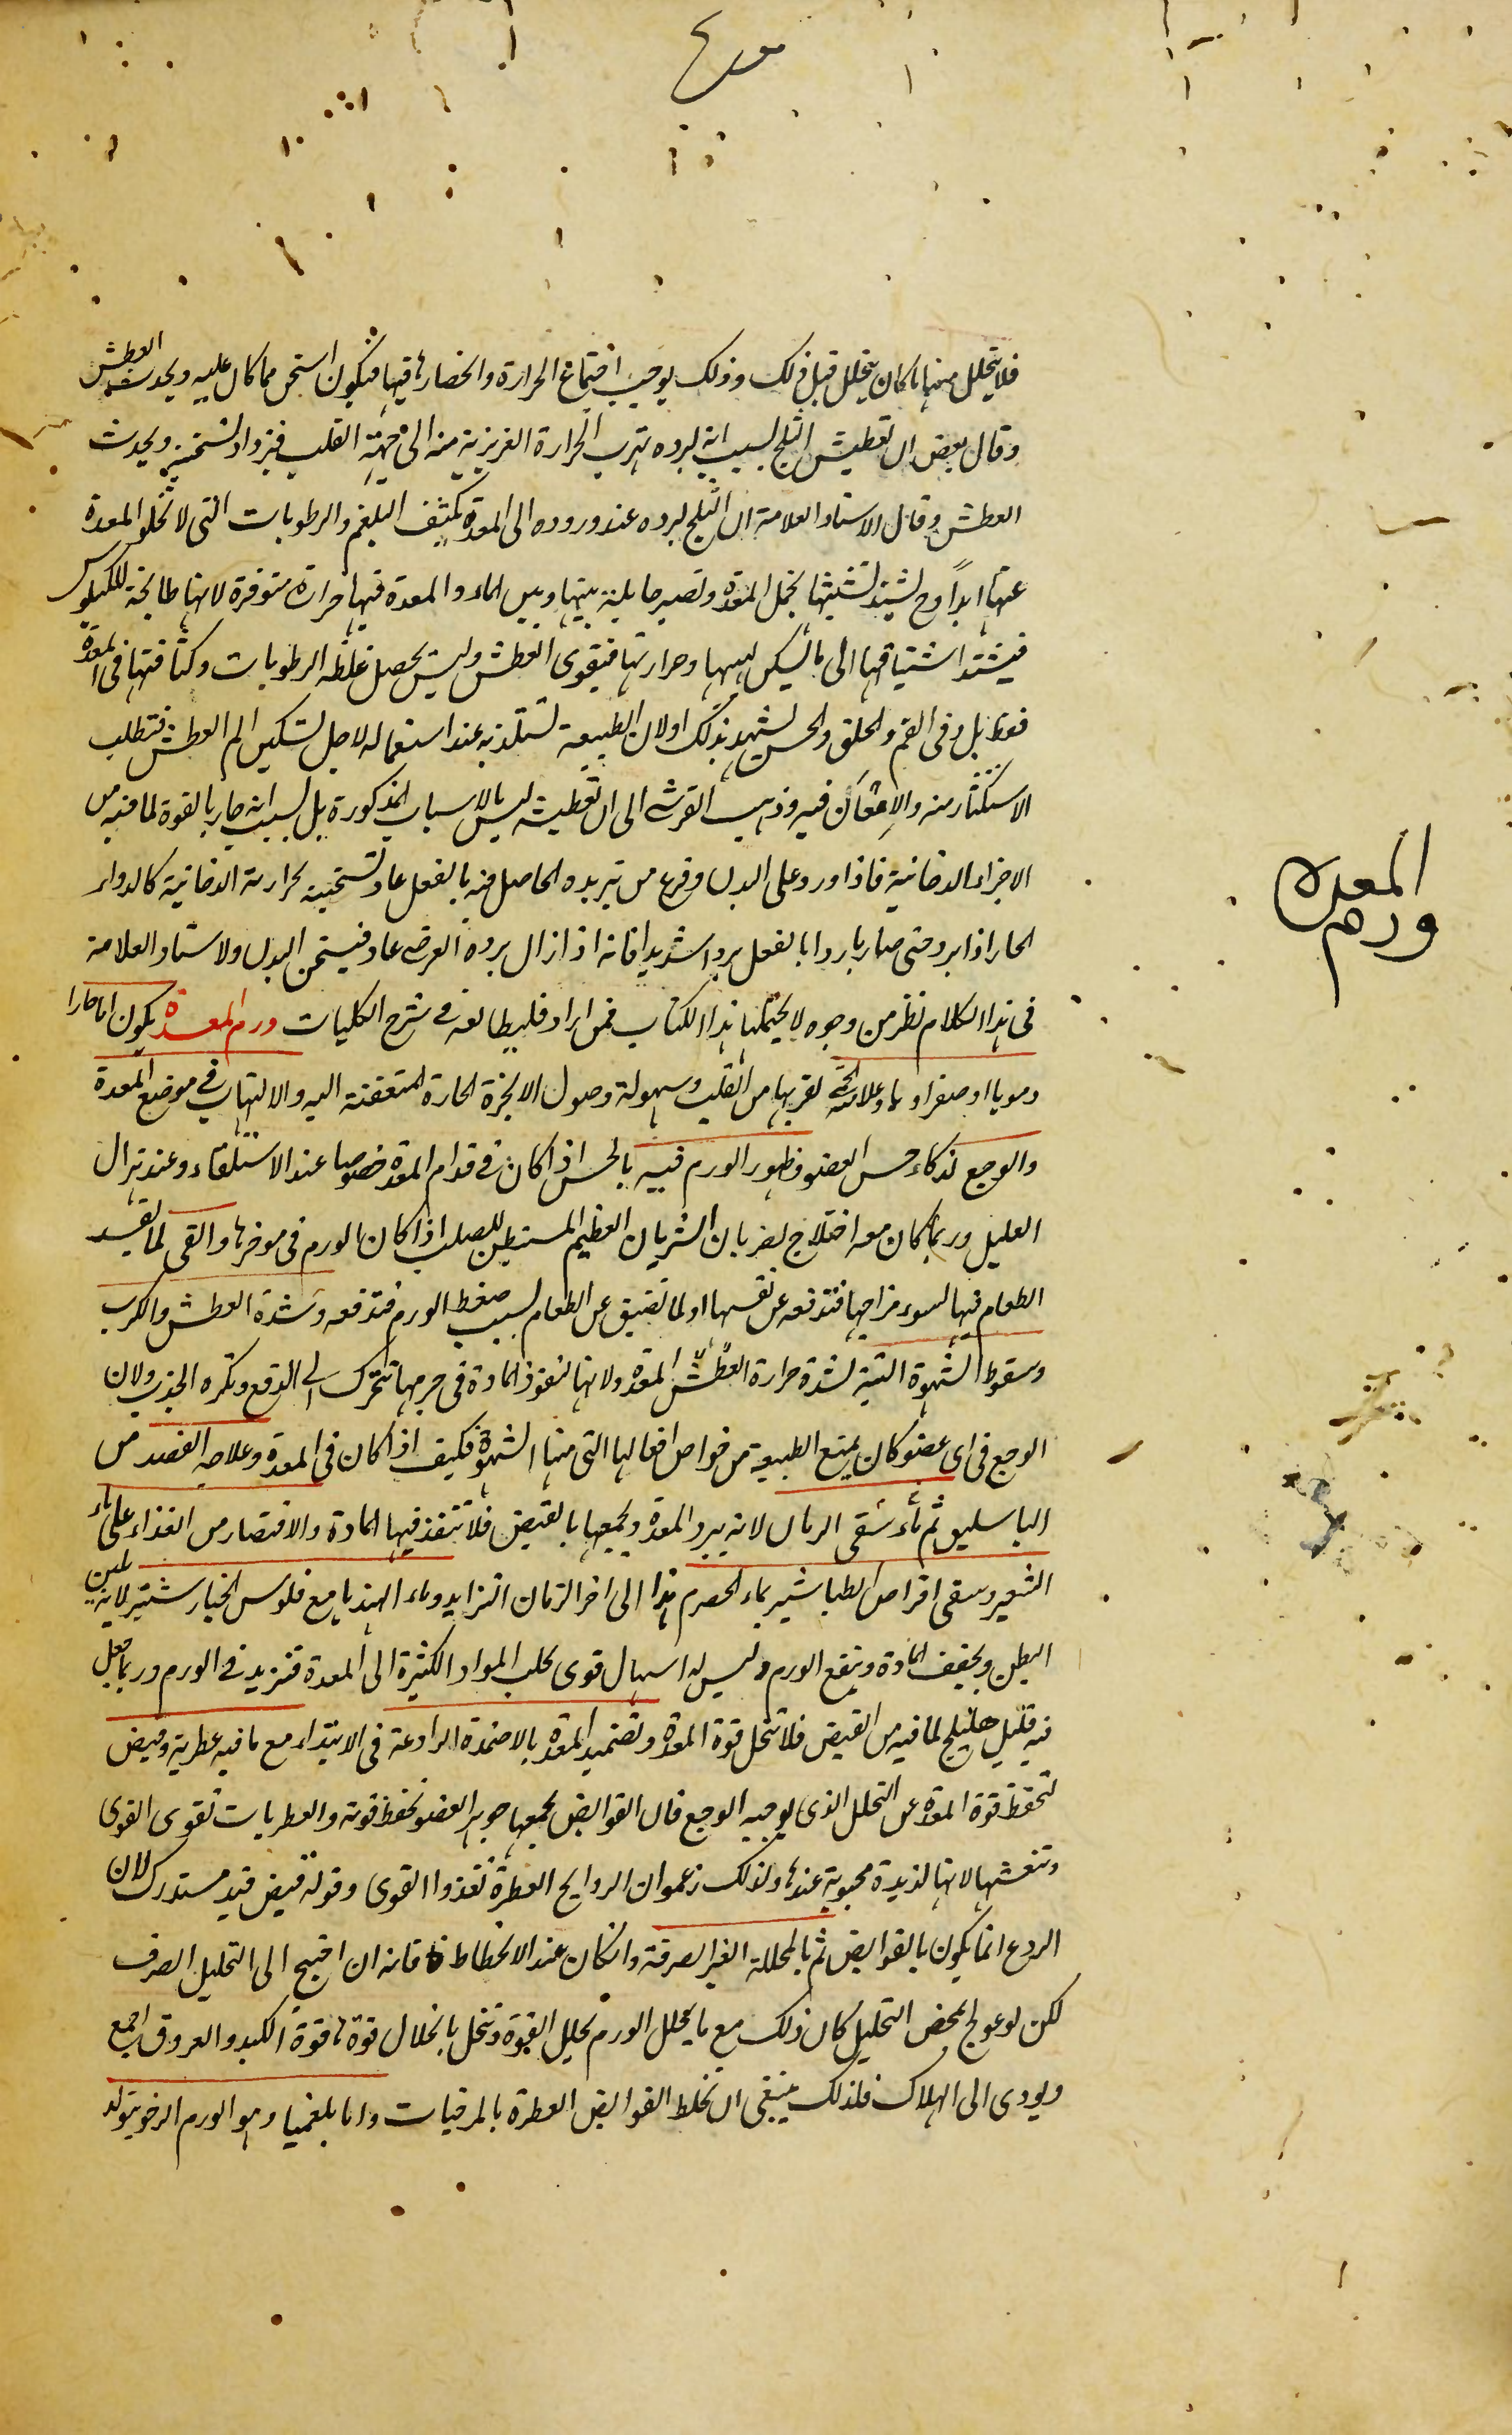 فلا يتحلل منها ما كان يتحلل قبل ذلك وذلك يوجب اجتماع الحرارة وانحصارها فيها فتكون اسخن مما كان عليه ويحدث العطش
وقال بعض ان تعطيش الثلج بسبب انه لبرده تهرب الحرارة الغريزية منه الى جهة القلب فيزداد تسخينه ويحدث
العطش وقال الاستاد العلامة ان الثلج لبرده عند وروده الى المعدة يكثف البلغم والرطوبات التى لا تخلو المعدة
عنها ابداً وح يشتد تشبثها بخمل المعدة وتصير حايلة بينها وبين الماء والمعدة فيها حرارة متوفرة لانها طابخة للكيلوس
فيشتد اشتياقها الى ما يسكن لهيبها وحرارتها فيقوى العطش وليس يحصل غلظه الرطوبات وكثافتها فى المعدة
فقط بل وفى الفم والحلق والحس يشهد بذلك او لان الطبيعة تستلذ به عند استعماله لاجل تسكين الم العطش فتطلب
الاستكثار منه والامعان فيه وذهب القرشى الى ان تعطيشه ليس بالاسباب المذكورة بل بسبب انه حار بالقوة لما فيه من
الاجزاء الدخانية فاذا ورد على البدن وفرغ من تبريده الحاصل فيه بالفعل عاد تسخينه لحرارته الدخانية كالدواء
الحار اذا برد حتى صار باردا بالفعل بردا شديدا فانه اذا زال برده العرضى عاد فيسخن البدن ولاستاد العلامة
فى هذا الكلام نظر من وجوه لا يحتملها هذا الكتاب فمن اراد فليطالعه فى شرح الكليات ورم المعدة يكون اما حارا
دمويا او صفراويا وعلامته الحمى لقربها من القلب وسهولة وصول الابخرة الحارة المتعفنة اليه والالتهاب فى موضع المعدة
والوجع لذكاء حس العضو وظهور الورم فيه بالحس اذا كان فى قدام المعدة خصوصا عند الاستلقاء وعند هزال
العليل وربما كان معه اختلاج لضربان الشريان العظيم المستبطن للصلب اذا كان الورم فى موخرها والقى لما يفسد
الطعام فيها لسوء مزاجها فتدفعه عن نفسها او لما تضيق عن الطعام بسبب ضغط الورم فتدفعه وشدة العطش والكرب
وسقوط الشهوة البتة لشدة حرارة العطش المعدة ولانها لنفوذ المادة فى جرمها تتحرك الى الدفع وتكره الجذب ولان
الوجع فى اى عضو كان يمنع الطبيعة من خواص افعالها التى منها الشهوة فكيف اذا كان فى المعدة وعلاجه الفصد من
الباسليق ثم ماء سقى الرمان لانه يبرد المعدة ويجمعها بالقبض فلا تنفذ فيها المادة والاقتصار من الغذاء على ماء
الشعير وسقى اقراص الطباشير بماء الحصرم هذا الى اخر الزمان التزايد وماء الهندبا مع فلوس الخيار شنبر لانه يلين
البطن ويخفف المادة وينفع الورم وليس له اسهال قوى يجلب المواد الكثيرة الى المعدة فتزيد فى الورم وربما جعل
فيه قليل هليلج لما فيه من القبض فلا تنحل قوة المعدة وتضميد المعدة بالاضمدة الرادعة فى الابتداء مع ما فيه عطرية وقبض
لتحفظ قوة المعدة عن التحلل الذى يوجبه الوجع فان القوابض بجمعها جوهر العضو تحفظ قوته والعطريات تقوى القوى
وتنعشها لانها لذيذة محبوبة عندها ولذلك زعموا ان الروايح العطرة تغذوا القوى وقوله قبض قيد مستدرك لان
الردع انما يكون بالقوابض ثم بالمحللة الغير الصرفة وان كان عند الانحطاط فانه ان احتيج الى التحليل الصرف
لكن لو عولج بمحض التحليل كان ذلك مع ما يحلل الورم يحلل القوة وتنحل بانحلال قوتها قوة الكبد والعروق اجمع
ويودى الى الهلاك فلذلك ينبغى ان تخلط القوابض العطرة بالمرخيات واما بلغميا وهو الورم الرخو يتولد
المعده
ورم